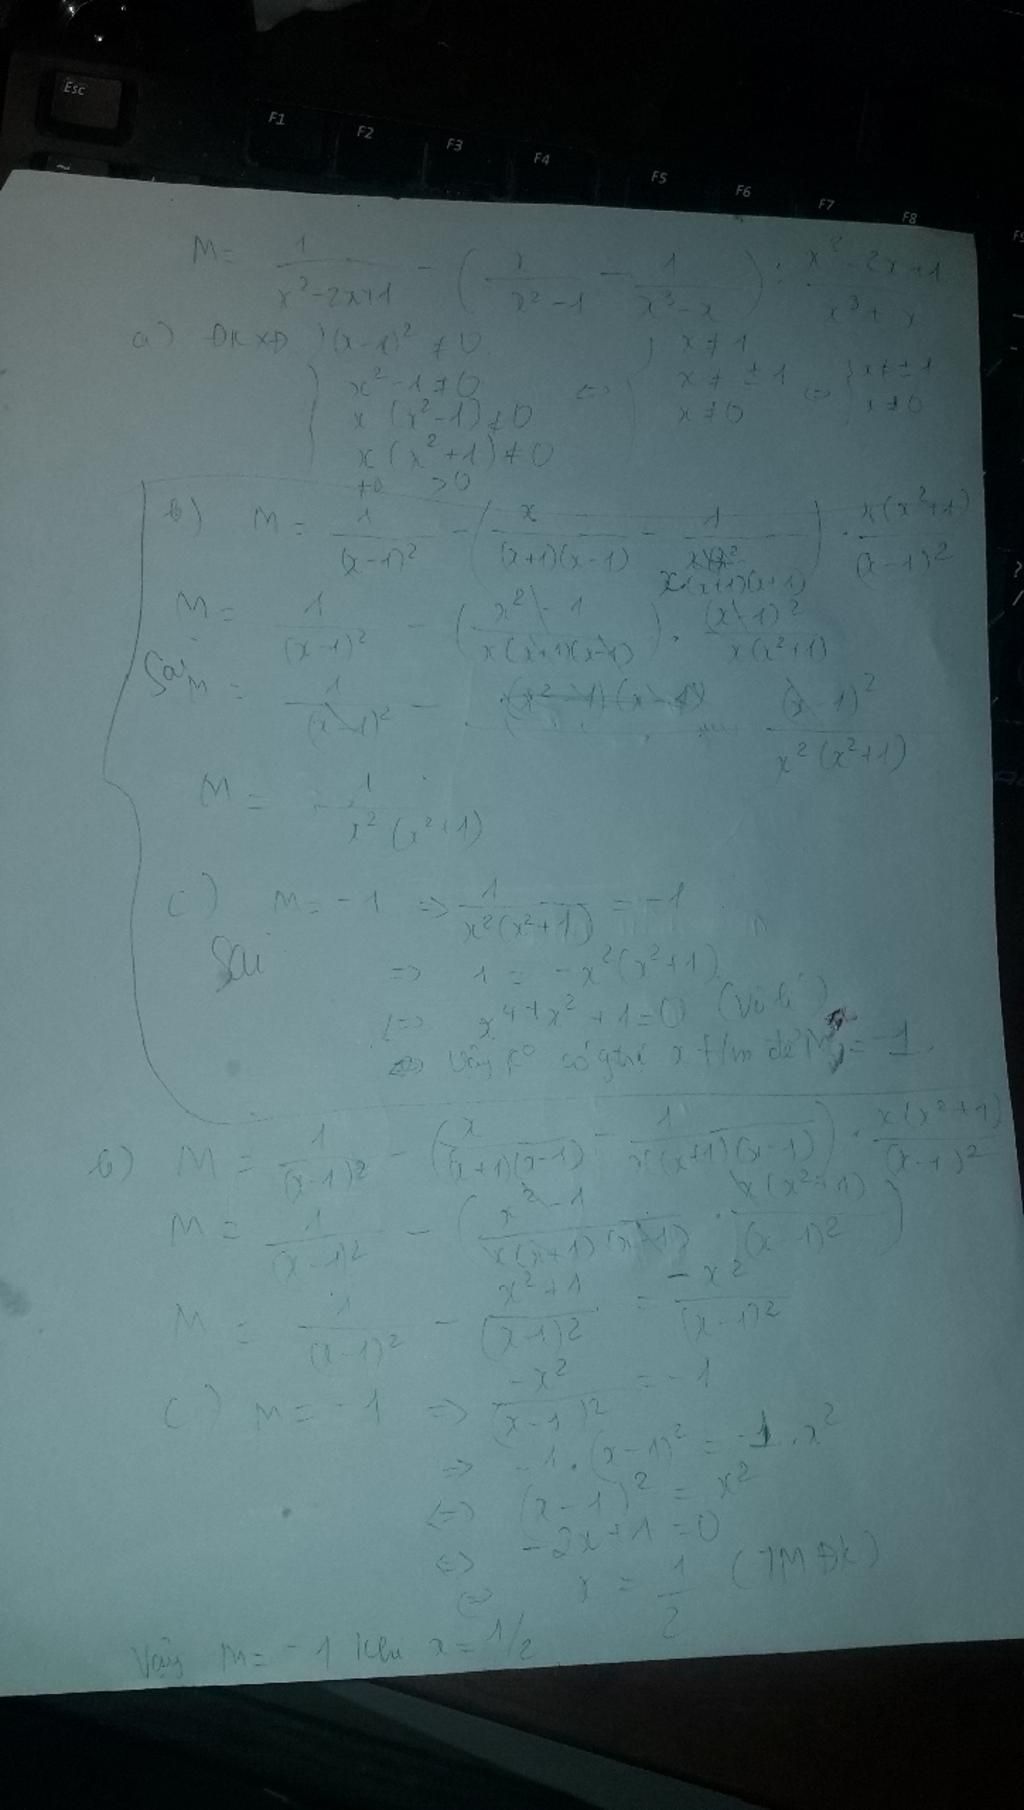 Esc
F1 F2 F3 F4 F5 F6 F7 F8
~
M = 1/(x² - 2x + 1) - (x/(x² - 1) - 1/(x³ - x)) : (x² - 2x + 1)/(x³ + x)
a) ĐKXĐ { (x-1)² ≠ 0 { x ≠ 1
x² - 1 ≠ 0 <=> x ≠ ±1 <=> { x ≠ ±1
x(x² - 1) ≠ 0 x ≠ 0 x ≠ 0
x(x² + 1) ≠ 0
≠0 >0
b) M = 1/(x-1)² - (x/((x+1)(x-1)) - 1/(x(x+1)(x+1))) · x(x²+1)/(x-1)²
M = 1/(x-1)² - ((x² - 1)/(x(x+1)(x-1))) · (x-1)²/(x(x²+1))
Sai M = 1/(x-1)² - (x-1)²/(x²(x²+1))
M = 1/(x²(x²+1))
c) M = -1 => 1/(x²(x²+1)) = -1
Sai
=> 1 = -x²(x²+1)
<=> x⁴ + x² + 1 = 0 (Vô lí)
<=> Vậy k° có gtrị x t/m để M = -1.
b) M = 1/(x-1)² - (x/((x+1)(x-1)) - 1/(x(x+1)(x-1))) · x(x²+1)/(x-1)²
M = 1/(x-1)² - ((x² - 1)/(x(x+1)(x-1)) · x(x²+1)/(x-1)²)
M = 1/(x-1)² - (x²+1)/(x-1)² = -x²/(x-1)²
c) M = -1 => -x²/(x-1)² = -1
=> -1 · (x-1)² = -1 . x²
<=> (x-1)² = x²
<=> -2x + 1 = 0
<=> x = 1/2 (TMĐK)
Vậy M = -1 khi x = 1/2